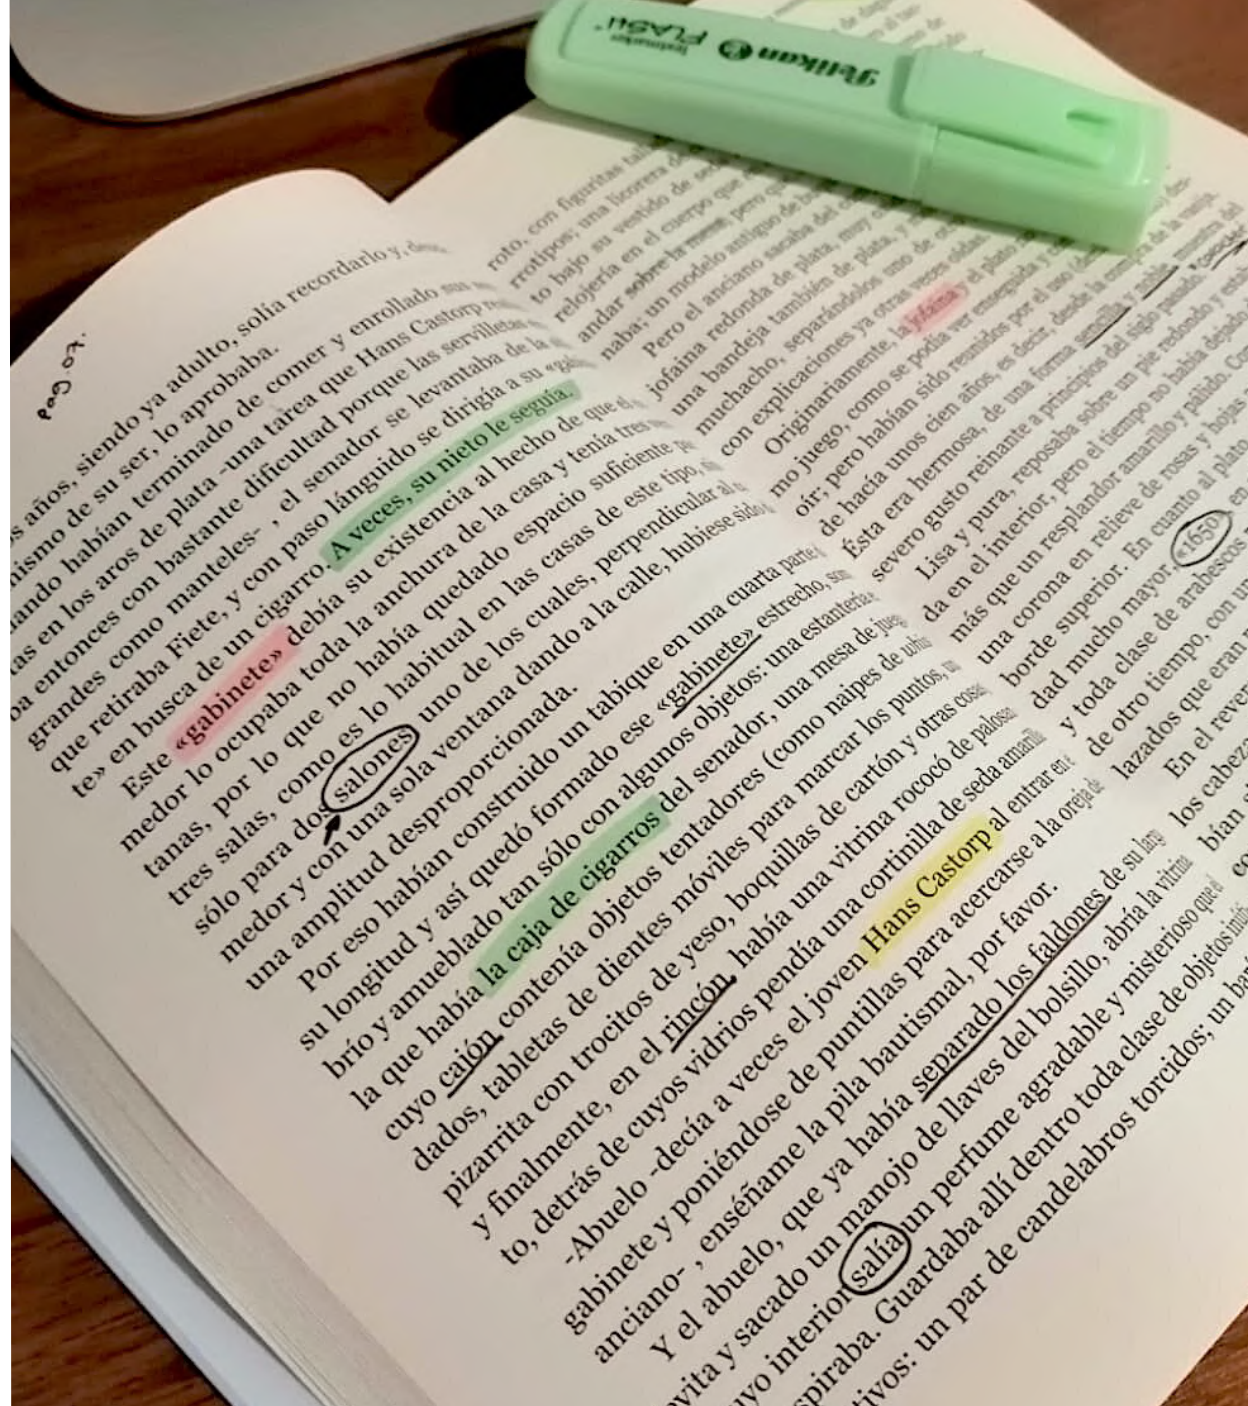 pag 07.
s años, siendo ya adulto, solía recordarlo y,
ismo de su ser, lo aprobaba.
ando habían terminado de comer y enrollado sus
as en los aros de plata -una tarea que Hans Castorp
a entonces con bastante dificultad porque las servilletas
grandes como manteles- , el senador se levantaba de la
que retiraba Fiete, y con paso lánguido se dirigía a su «gabi
te» en busca de un cigarro. A veces, su nieto le seguía.
Este «gabinete» debía su existencia al hecho de que el
medor lo ocupaba toda la anchura de la casa y tenía tres
tanas, por lo que no había quedado espacio suficiente
tres salas, como es lo habitual en las casas de este tipo,
sólo para dos salones uno de los cuales, perpendicular al
medor y con una sola ventana dando a la calle, hubiese sido
una amplitud desproporcionada.
Por eso habían construido un tabique en una cuarta parte
su longitud y así quedó formado ese «gabinete» estrecho,
brío y amueblado tan sólo con algunos objetos: una estantería
la que había la caja de cigarros del senador, una mesa de
cuyo cajón contenía objetos tentadores (como naipes de
dados, tabletas de dientes móviles para marcar los puntos,
pizarrita con trocitos de yeso, boquillas de cartón y otras cosas
y finalmente, en el rincón, había una vitrina rococó de
to, detrás de cuyos vidrios pendía una cortinilla de seda
-Abuelo -decía a veces el joven Hans Castorp al entrar en
gabinete y poniéndose de puntillas para acercarse a la oreja de
anciano- , enséñame la pila bautismal, por favor.
Y el abuelo, que ya había separado los faldones de su
evita y sacado un manojo de llaves del bolsillo, abría la vitrina
uyo interior salía un perfume agradable y misterioso que el
spiraba. Guardaba allí dentro toda clase de objetos
tivos: un par de candelabros torcidos; un
roto, con figuritas
rrotipos; una licorera
to bajo su vestido de
relojería en el cuerpo que
andar sobre la mesa, pero
naba; un modelo antiguo de
Pero el anciano sacaba del
jofaina redonda de plata, muy
una bandeja también de plata, y
muchacho, separándolos uno de
con explicaciones ya otras veces oídas.
Originariamente, la jofaina y el
mo juego, como se podía ver enseguida y
oír; pero habían sido reunidos por el uso
de hacía unos cien años, es decir, desde la compra de la vasija.
Ésta era hermosa, de una forma sencilla y noble muestra del
severo gusto reinante a principios del siglo pasado
Lisa y pura, reposaba sobre un pie redondo y
da en el interior, pero el tiempo no había dejado
más que un resplandor amarillo y pálido.
una corona en relieve de rosas y hojas
borde superior. En cuanto al plato,
dad mucho mayor. «1650»
y toda clase de arabescos
de otro tiempo, con
lazados que eran
En el
los
bían
Pelikan
FLASH
textmarker